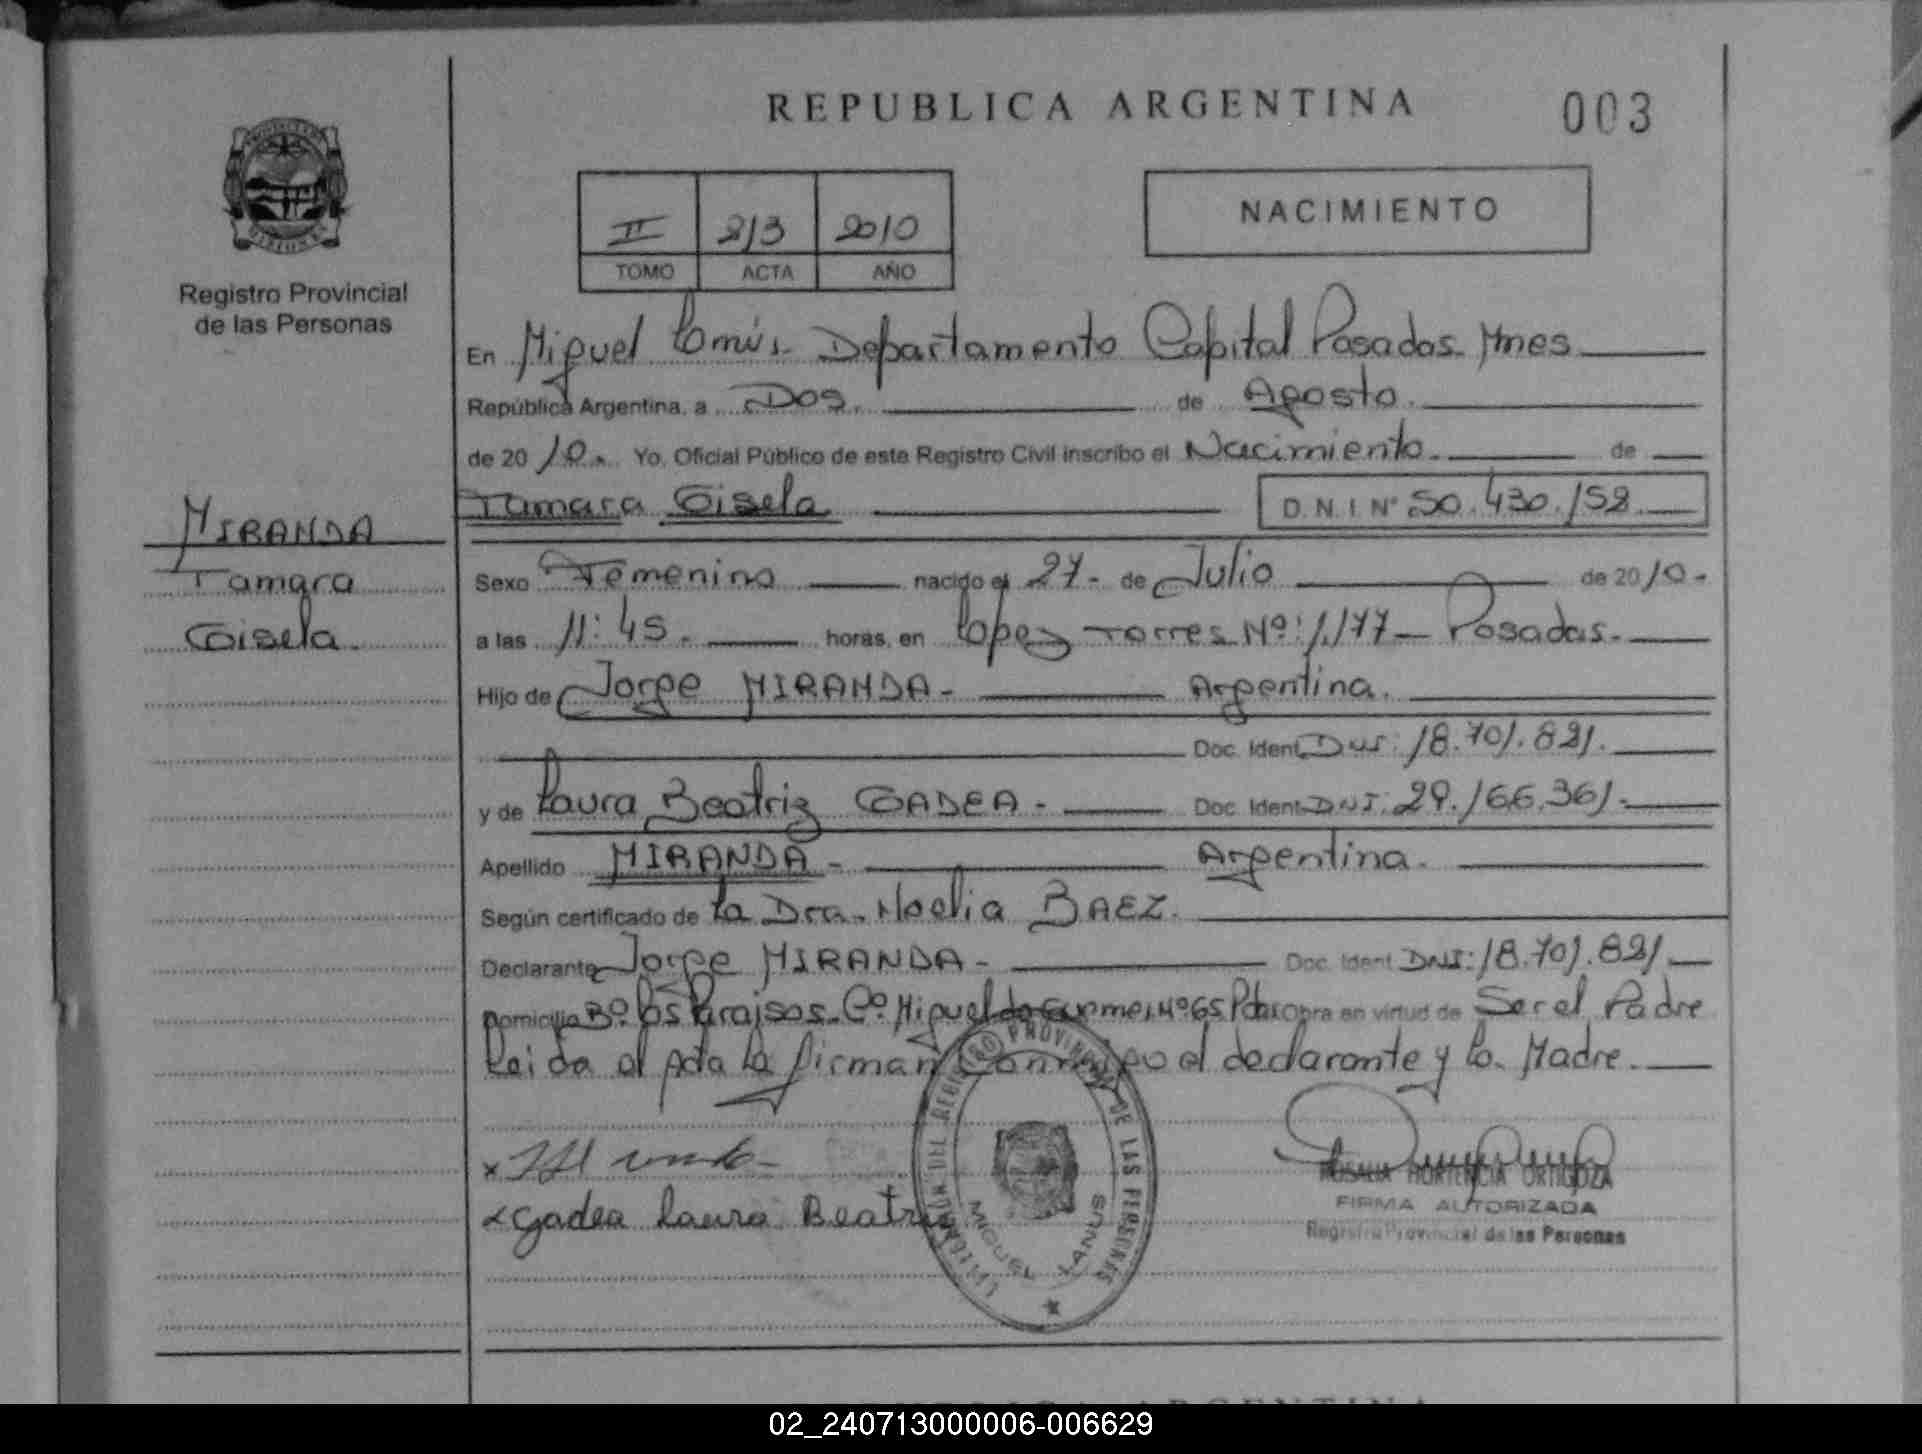 REPUBLICA ARGENTINA
003
II 213 2010
TOMO ACTA AÑO
NACIMIENTO
Registro Provincial
de las Personas
En Miguel Lanús. Departamento Capital Posadas. Mnes
República Argentina, a Dos. de Agosto.
de 2010. Yo, Oficial Público de este Registro Civil inscribo el Nacimiento. de
Tamara Gisela D.N.I. Nº 50.430.152
MIRANDA
Tamara
Gisela.
Sexo Femenino nacido el 27- de Julio de 2010.
a las 11:45. horas, en Lopez Torres Nº: 1.177 - Posadas.
Hijo de Jorge MIRANDA - Argentina.
Doc. Ident. DNI: 18.701.821.
y de Laura Beatriz GADEA - Doc. Ident. DNI: 29.166.361.
Apellido MIRANDA - Argentina.
Según certificado de La Dra. Noelia BAEZ.
Declarante Jorge MIRANDA - Doc. Ident. DNI: 18.701.821
Domicilio Bº Los Paraisos. Cº Miguel de Nº 65 Pdas Obra en virtud de Ser el Padre
Leida el Acta la firman Conmigo el declarante y la Madre.
x Gadea Laura Beatriz
REGISTRO PROVINCIAL DE LAS PERSONAS
MIGUEL LANUS
ROSALIA HORTENCIA ORTIGOZA
FIRMA AUTORIZADA
Registro Provincial de las Personas
02_240713000006-006629